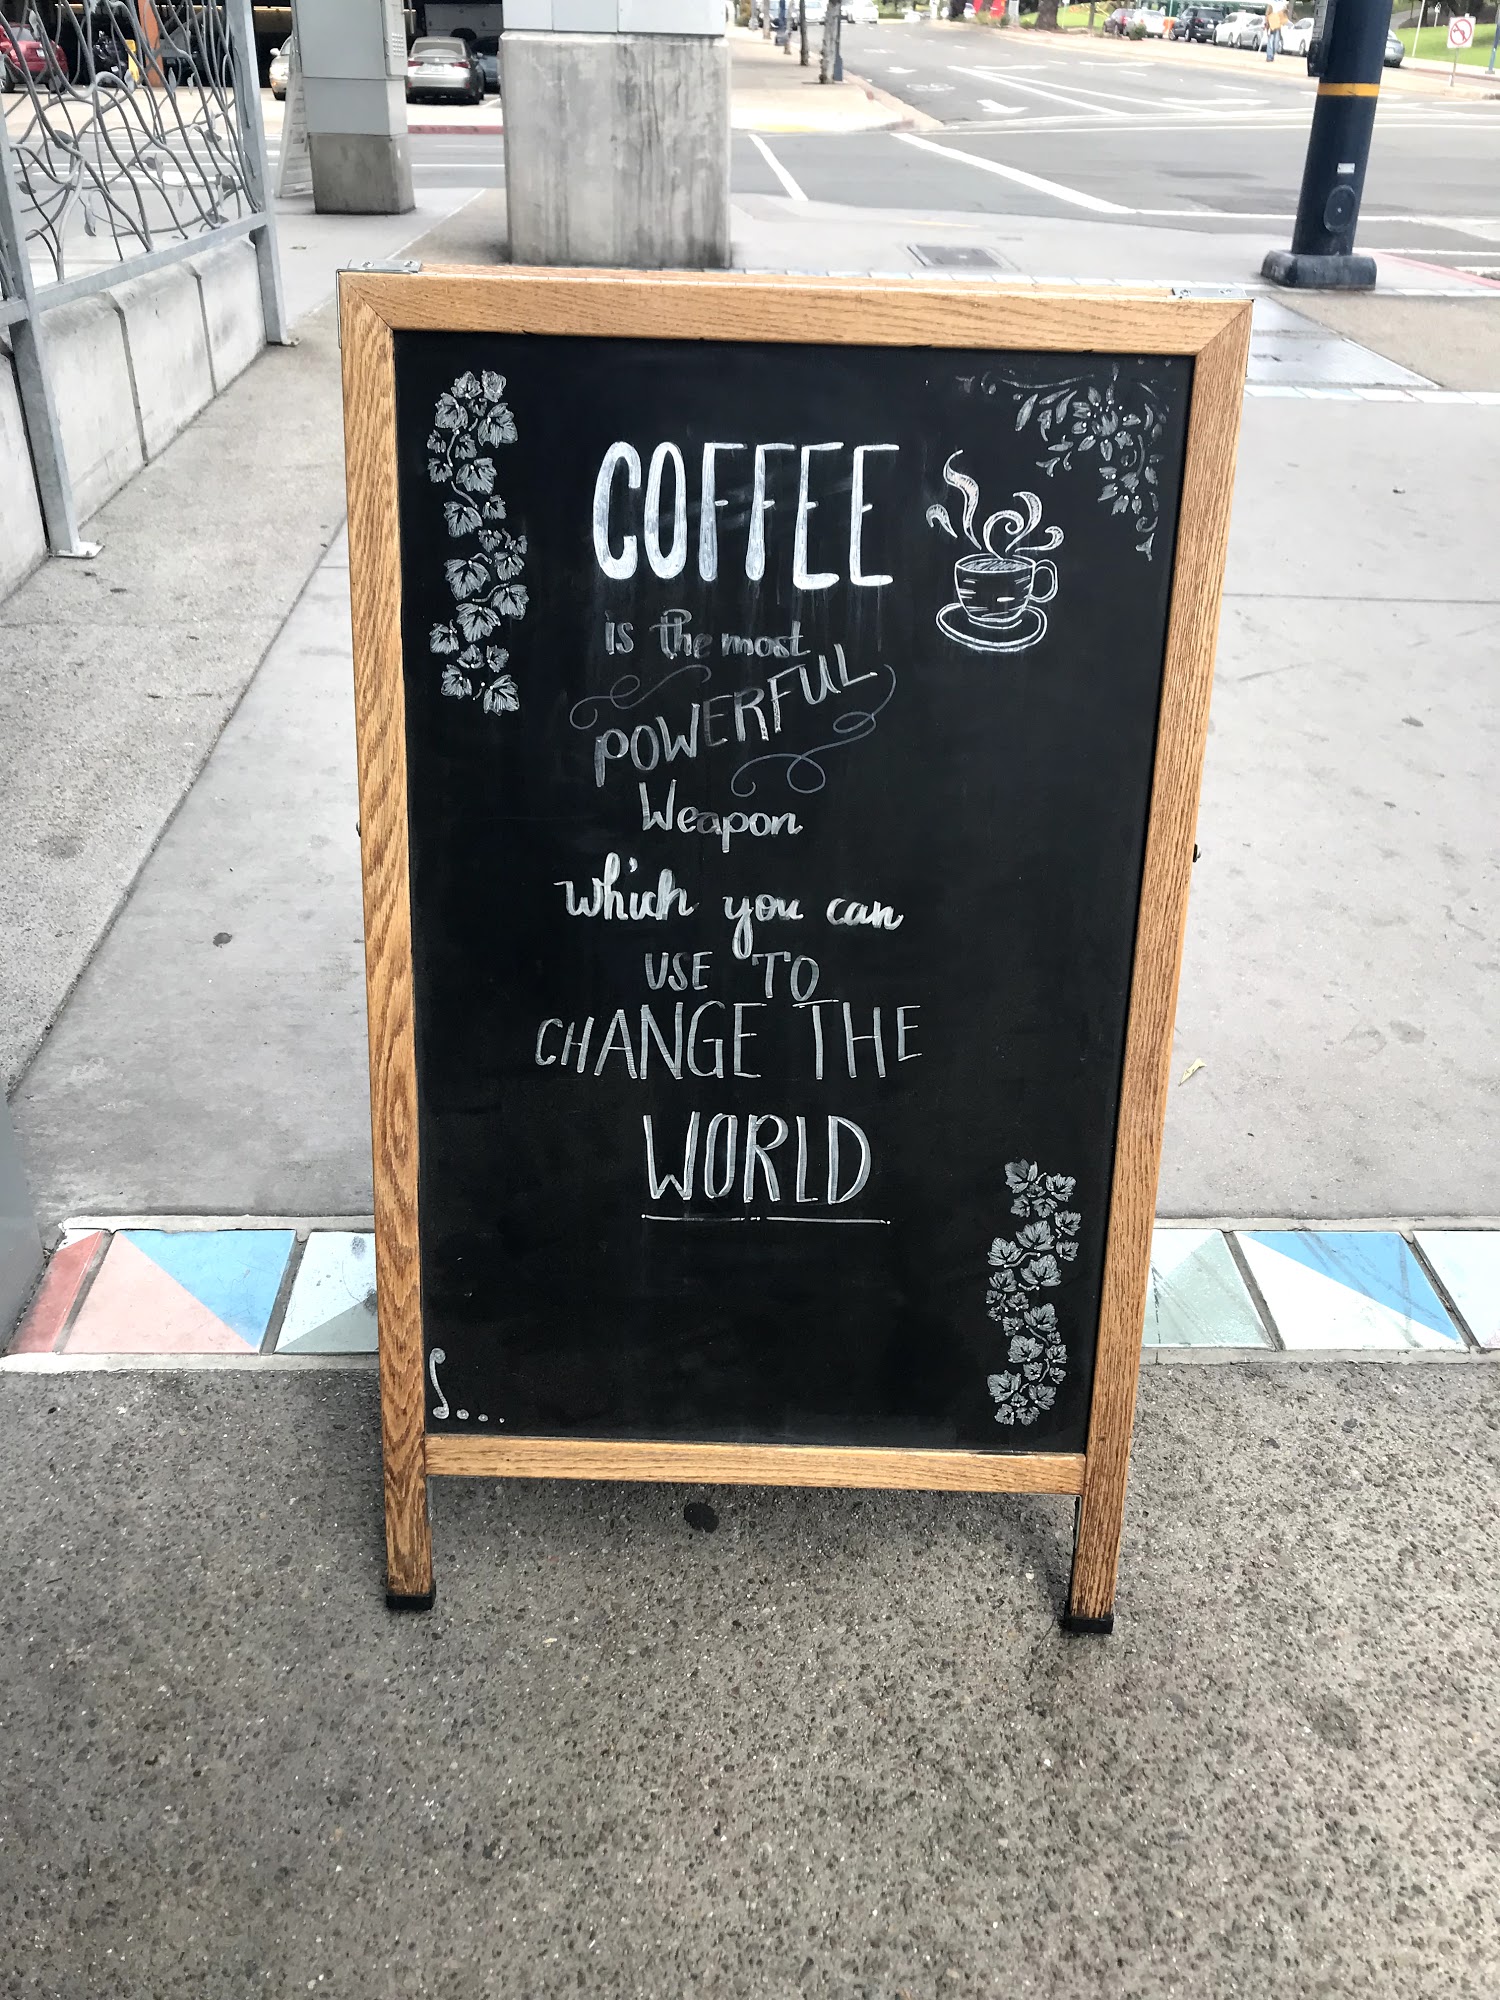 COFFEE
is the most
POWERFUL
Weapon
which you can
USE TO
CHANGE THE
WORLD